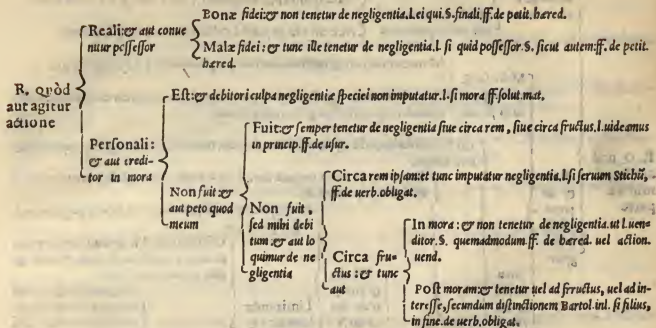 R. Quòd
aut agitur
actione
Reali: & aut conue
nitur possessor
Bonæ fidei: & non tenetur de negligentia. l. ei qui. §. finali. ff. de petit. hæred.
Malæ fidei: & tunc ille tenetur de negligentia. l. si quid possessor. §. sicut autem: ff. de petit.
hæred.
Personali:
& aut credi-
tor in mora
Est: & debitori culpa negligentiæ speciei non imputatur. l. si mora ff. solut. mat.
Non fuit: &
aut peto quod
meum
Fuit: & semper tenetur de negligentia siue circa rem, siue circa fructus. l. uideamus
in princip. ff. de usur.
Non fuit,
sed mihi debi
tum: & aut lo
quimur de ne
gligentia
Circa rem ipsam: et tunc imputatur negligentia. l. si seruum Stichũ,
ff. de uerb. obligat.
Circa fru-
ctus: & tunc
aut
In mora: & non tenetur de negligentia. ut l. uen-
ditor. §. quemadmodum. ff. de hæred. uel action.
uend.
Post moram: & tenetur uel ad frructus, uel ad in-
teresse, secundum distinctionem Bartol. in l. si filius,
in fine. de uerb. obligat.